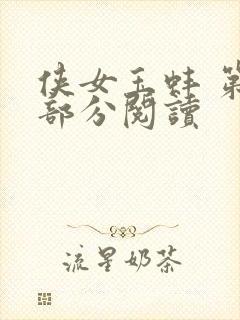 侠女玉蚌 第
部分閱讀
流星奶茶